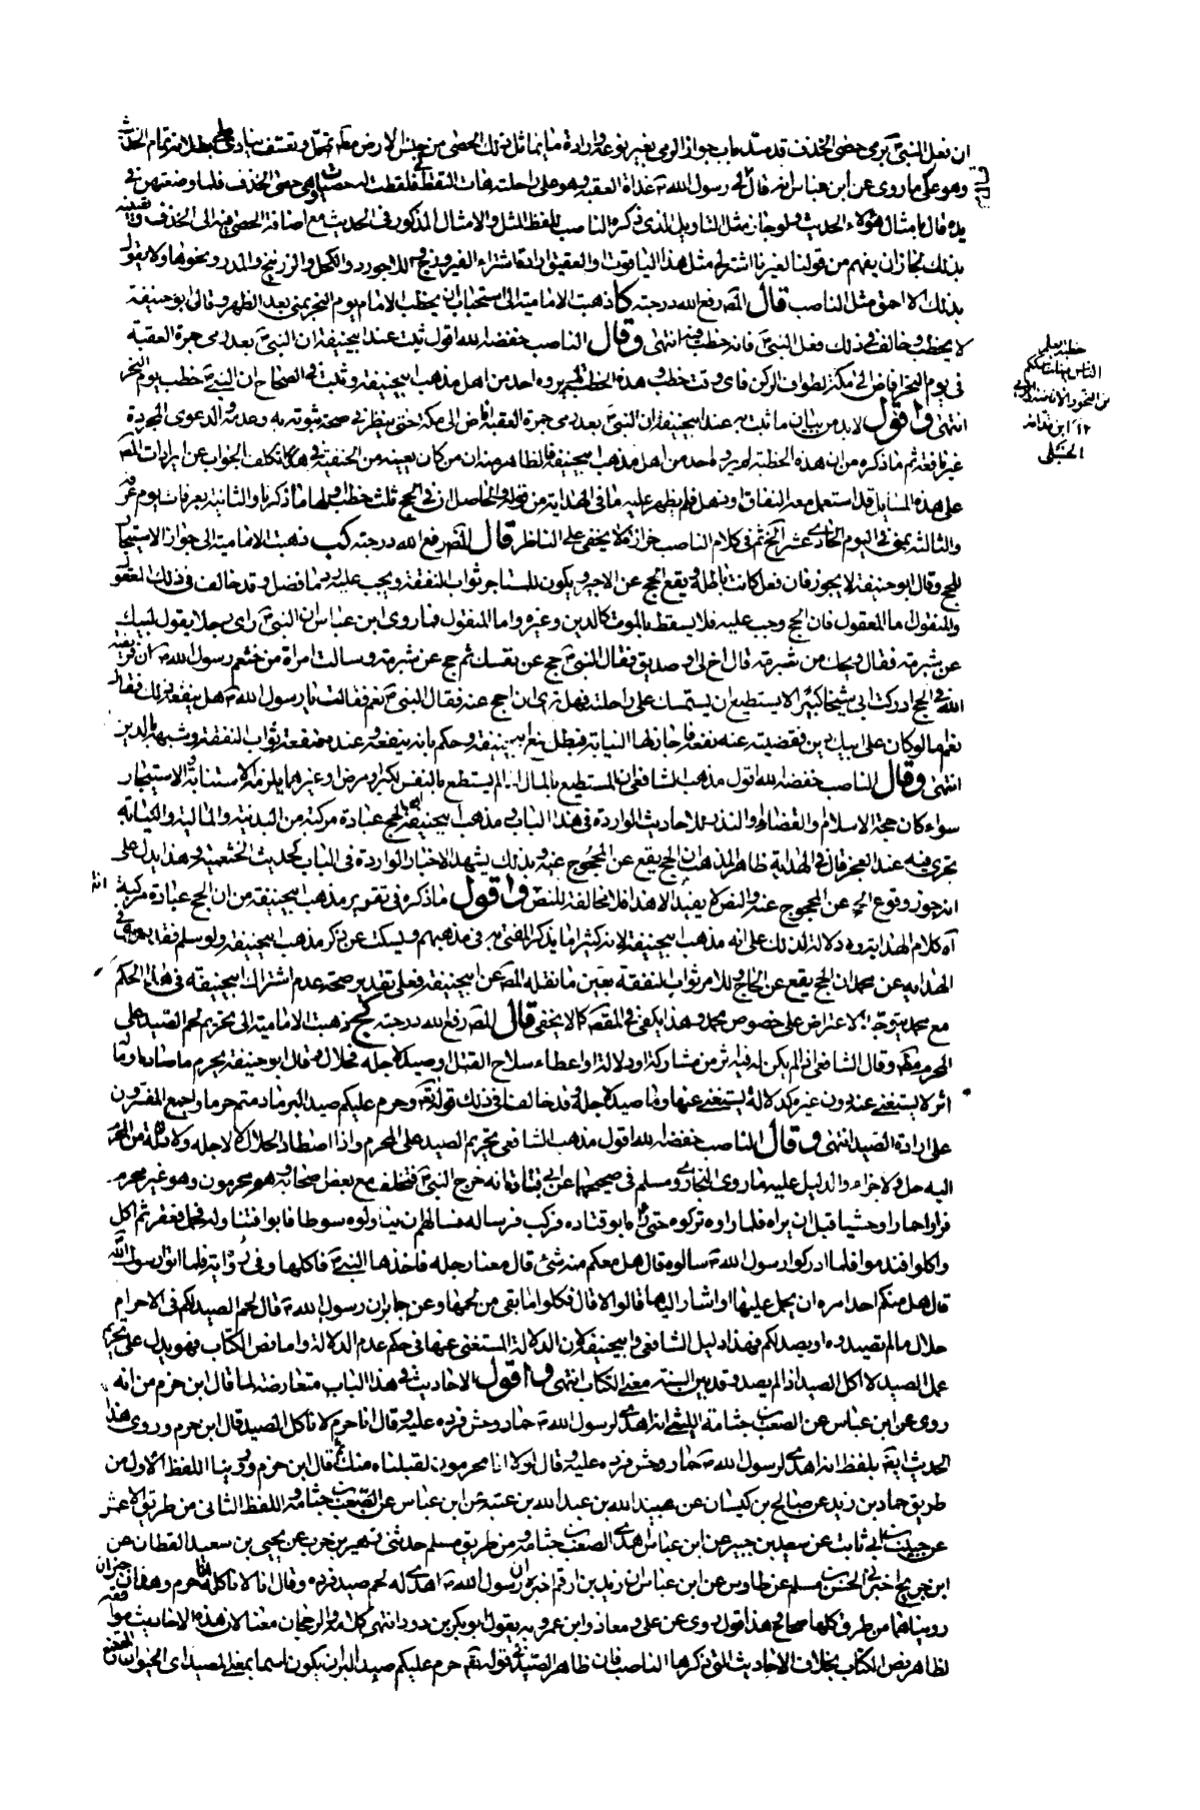 ان فعل النبي ص برمي حصى الخذف قد سد باب جواز الرمي بغيره نوعه وارادة ما يماثل تلك الحصى من جنس الارض
وهو على ما روى عن ابن عباس انه قال لي رسول الله ص غداة العقبة وهو على راحلته هات القط لي فلقطت له حصيات هي حصى الخذف فلما وضعتهن في
يده قال بامثال هؤلاء الحديث ولو جاز مثل التاويل الذي ذكره الناصب للفظ المثل والامثال المذكور في الحديث مع اضافة الحصى فيه الى الخذف
بذلك لجاز ان يفهم من قولنا لغيرنا اشتر لي مثل هذا الياقوت والعقيق ارادة اشتراء الفيروزج واللاجورد والكحل والزرنيخ والمدر ونحوها ولا يقول
بذلك الا احمق مثل الناصب قال المص رفع الله درجته كا ذهبت الامامية الى استحباب ان يخطب الامام يوم النحر بمنى بعد الظهر وقال ابو حنيفة
لا يخطب وخالف في ذلك فعل النبي ص فانه خطب فيه انتهى وقال الناصب خفضه الله اقول ثبت عند ابيحنيفة ان النبي ص بعد رمي جمرة العقبة
في يوم النحر افاض الى مكة لطواف الركن فاي وقت خطب وهذه الخطبة لم يروه احد من اهل مذهب ابيحنيفة وثبت في الصحاح ان النبي ص خطب يوم النحر
انتهى واقول لا بد من بيان ما ثبت به عند ابيحنيفة ان النبي ص بعد رمي جمرة العقبة افاض الى مكة حتى ينظر في صحة ثبوته به وعدمه والدعوى المجردة
غير نافعة ثم ما ذكره من ان هذه الخطبة لم يروه احد من اهل مذهب ابيحنيفة فالظاهر منه ان من كان يعينه من الحنفية في تكلف الجواب عن ايرادات المص
على هذه المسايل قد استعمل معه النفاق او ذهل فلم يظهر عليه ما في الهداية من قوله والحاصل ان في الحج ثلث خطب اولها ما ذكرنا والثانية بعرفات يوم عرفة
والثالثة بمنى في اليوم الحادي عشر الخ ثم في كلام الناصب حزازة لا يخفى على الناظر قال المص رفع الله درجته كب ذهبت الامامية الى جواز الاستيجار
للحج وقال ابو حنيفة لا يجوز فان فعل كانت باطلة ويقع الحج عن الاجير ويكون للمستاجر ثواب النفقة ويجب عليه رد ما فضل وقد خالف في ذلك المعقول
والمنقول اما المعقول فان الحج وجب عليه فلا يسقط بالموت كالدين وغيره واما المنقول فما روى ابن عباس ان النبي ص راى رجلا يقول لبيك
عن شبرمة فقال ويحك من شبرمة قال اخ لي او صديق فقال النبي ص حج عن نفسك ثم حج عن شبرمة وسالت امراة من خثعم رسول الله ص ان فريضة
الله في الحج ادركت ابي شيخا كبيرا لا يستطيع ان يستمسك على راحلته فهل ترى ان احج عنه فقال النبي ص نعم فقالت يا رسول الله ص هل ينفعه ذلك فقال
نعم اما لو كان على ابيك دين فقضيته عنه نفعه فاجازها النيابة فبطل منع ابيحنيفة وحكم بانه ينفعه وعنده منفعة ثواب النفقة وشبهه بالدين
انتهى وقال الناصب خفضه الله اقول مذهب الشافعي ان المستطيع بالمال لم يستطع بالنفس لكبر او مرض او غيرهما يلزمه الاستنابة والاستيجار
سواء كان حجة الاسلام والقضاء او النذر للاحاديث الواردة في هذا الباب ومذهب ابيحنيفة ان الحج عبادة مركبة من البدنية والمالية والنيابة
تجري فيه عند العجز قال في الهداية ظاهر المذهب ان الحج يقع عن المحجوج عنه وبذلك يشهد الاخبار الواردة في الباب كحديث الخثعمية وهذا يدل على
انه جوز وقوع الحج عن المحجوج عنه والنص لا يفيد الا هذا فلا مخالفة للنص واقول ما ذكره في تقرير مذهب ابيحنيفة من ان الحج عبادة مركبة
اه كلام الهداية ولا دلالة لذلك على انه مذهب ابيحنيفة لانه كثيرا ما يذكر المفتى به في مذهبهم ويسكت عن ذكر مذهب ابيحنيفة ولو سلم فقد يروى في
الهداية عن محمد ان الحج يقع عن الحاج وللامر ثواب النفقة بعين ما نقله المص عن ابيحنيفة فعلى تقدير صحة عدم اشتراك ابيحنيفة في هذا الحكم
مع محمد يتوجه الاعتراض على خصوص محمد وهذا يكفي في المقصود كما لا يخفى قال المص رفع الله درجته كج ذهبت الامامية الى تحريم لحم الصيد على
المحرم وقال الشافعي ان لم يكن له فيه اثر من مشاركة او دلالة او اعطاء سلاح القتل او صيد لاجله فحلال وقال ابو حنيفة يحرم ما صاده وما
اثر لا يستغنى عنه دون غيره كدلالة يستغنى عنها وما صيد لاجله وقد خالفا في ذلك قوله تعالى وحرم عليكم صيد البر ما دمتم حرما واجمع المفسرون
على ارادة الصيد انتهى وقال الناصب خفضه الله اقول مذهب الشافعي تحريم الصيد على المحرم واذا اصطاد الحلال لا لاجله ولا دلالة من المحرم
اليه حل ولا جزاء والدليل عليه ما روى البخاري ومسلم في صحيحهما عن ابي قتادة انه خرج مع النبي ص فتخلف مع بعض اصحابه وهم محرمون وهو غير محرم
فراوا حمارا وحشيا قبل ان يراه فلما راوه تركوه حتى رآه ابو قتادة فركب فرسا له فسالهم ان يناولوه سوطا فابوا فتناوله فحمل فعقره ثم اكل
واكلوا فندموا فلما ادركوا رسول الله ص سالوه قال هل معكم منه شئ قال معنا رجله فاخذها النبي ص فاكلها وفي رواية فلما اتوا رسول الله
قال هل منكم احد امره ان يحمل عليها او اشار اليها قالوا لا قال فكلوا ما بقي من لحمها وعن جابر ان رسول الله ص قال لحم الصيد لكم في الاحرام
حلال ما لم تصيدوه او يصد لكم فهذا دليل الشافعي وابيحنيفة لان الدلالة المستغنى عنها في حكم عدم الدلالة واما نص الكتاب فهو يدل على تحريم
عمل الصيد لا اكل الصيد اذا لم يصد وقد بين السنة معنى الكتاب انتهى واقول الاحاديث في هذا الباب متعارضة لما قال ابن حزم من انه
روى عن ابن عباس عن الصعب بن جثامة الليثي انه اهدى لرسول الله ص حمار وحش فرده عليه وقال انا حرم لا ناكل الصيد قال ابن حزم وروى هذا
الحديث ايضا بلفظ انه اهدى لرسول الله ص حمار وحش فرده عليه وقال لولا انا محرمون لقبلناه منك قال ابن حزم روينا اللفظ الاول من
طريق حماد بن زيد عن صالح بن كيسان عن عبيد الله بن عبد الله بن عتبة عن ابن عباس عن الصعب بن جثامة واللفظ الثاني من طريق الاعمش
عن حبيب بن ابي ثابت عن سعيد بن جبير عن ابن عباس اهدى الصعب بن جثامة ومن طريق مسلم حدثني زهير بن حرب عن يحيى بن سعيد القطان عن
ابن جريج اخبرني الحسن بن مسلم عن طاوس عن ابن عباس ان زيد بن ارقم اخبره ان رسول الله ص اهدي له لحم صيد فرده وقال انا لا ناكله انا حرم وهذان خبران
رويناهما من طرق كلها صحاح وهذا قول روي عن علي ومعاذ وابن عمر وبه يقول ابو بكر بن داود انتهى كلامه والرجحان معنا لان هذه الاحاديث موافقة
لظاهر نص الكتاب بخلاف الاحاديث التي ذكرها الناصب فان ظاهر الصيد في قوله تعالى حرم عليكم صيد البر ان يكون اسما بمعنى المصيد اى الحيوان الممتنع
خطبة يعلم
الناس مناسكهم
من النحر والافاضة والرمي
١٢ ابن قدامة
الحنبلي